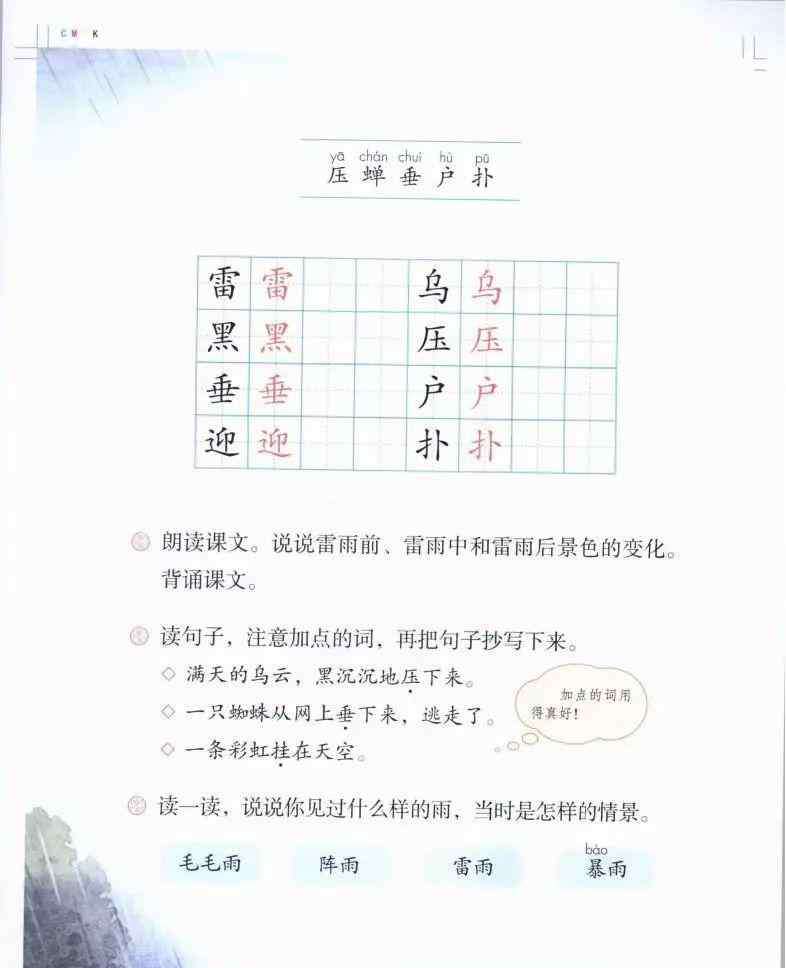 CM K
yā chán chuí hù pū
压 蝉 垂 户 扑
雷 雷 乌 乌
黑 黑 压 压
垂 垂 户 户
迎 迎 扑 扑
朗读课文。说说雷雨前、雷雨中和雷雨后景色的变化。
背诵课文。
读句子，注意加点的词，再把句子抄写下来。
◇ 满天的乌云，黑沉沉地压下来。
◇ 一只蜘蛛从网上垂下来，逃走了。
◇ 一条彩虹挂在天空。
加点的词用
得真好！
读一读，说说你见过什么样的雨，当时是怎样的情景。
bào
毛毛雨 阵雨 雷雨 暴雨